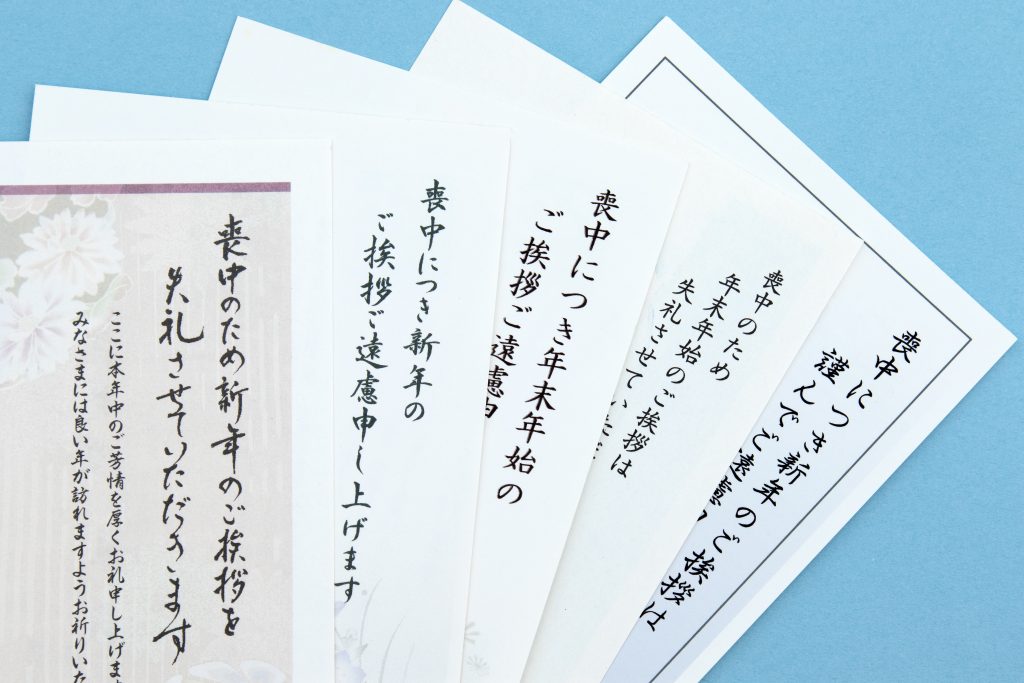 喪中のため新年のご挨拶を
失礼させていただきます
ここに本年中のご芳情を厚くお礼申し上げま
みなさまには良い年が訪れますようお祈りいた
喪中につき新年の
ご挨拶ご遠慮申し上げます
喪中につき年末年始の
ご挨拶ご遠慮申
喪中のため
年末年始のご挨拶は
失礼させていただ
喪中につき新年のご挨拶は
謹んでご遠慮